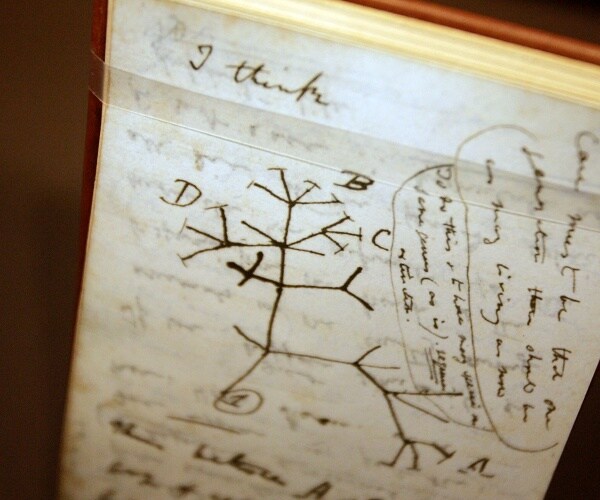 I think
B
D
C
1
A
Case must be that one
generation then should be
as many living as now
To do this & to have many species in
same genus (as is) requires
extinction.
between A